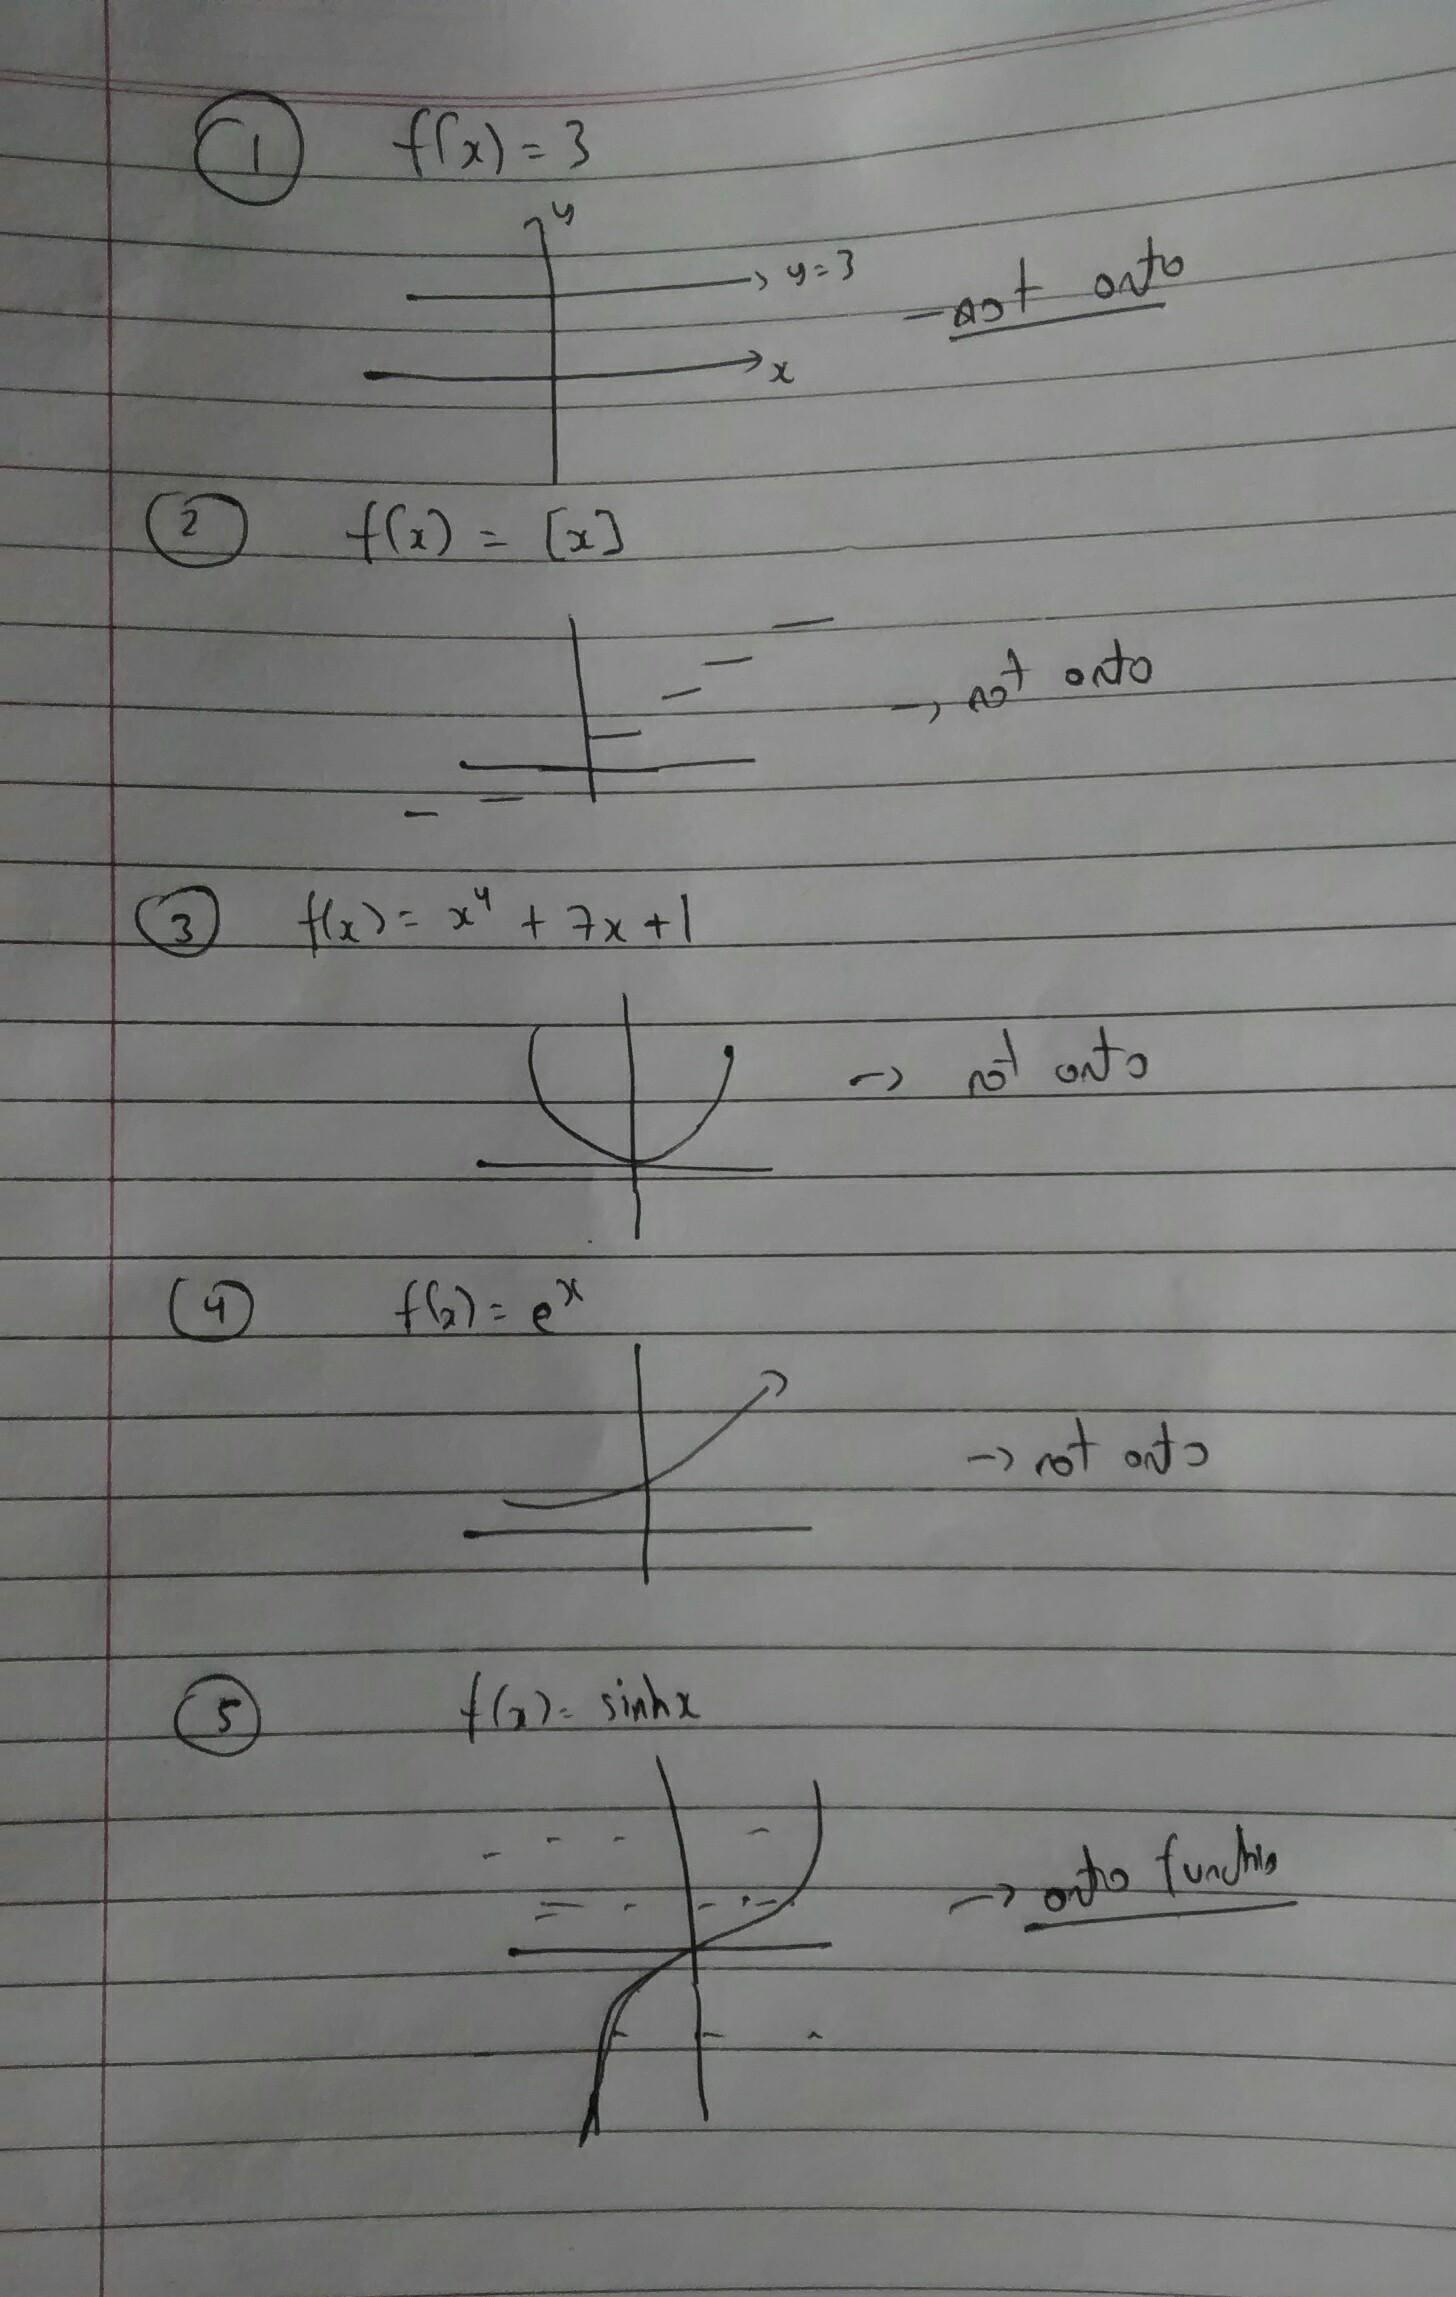 1 f(x) = 3
y
y=3
- not onto
x
2 f(x) = [x]
→ not onto
3 f(x) = x⁴ + 7x + 1
→ not onto
4 f(x) = eˣ
→ not onto
5 f(x) = sinhx
→ onto